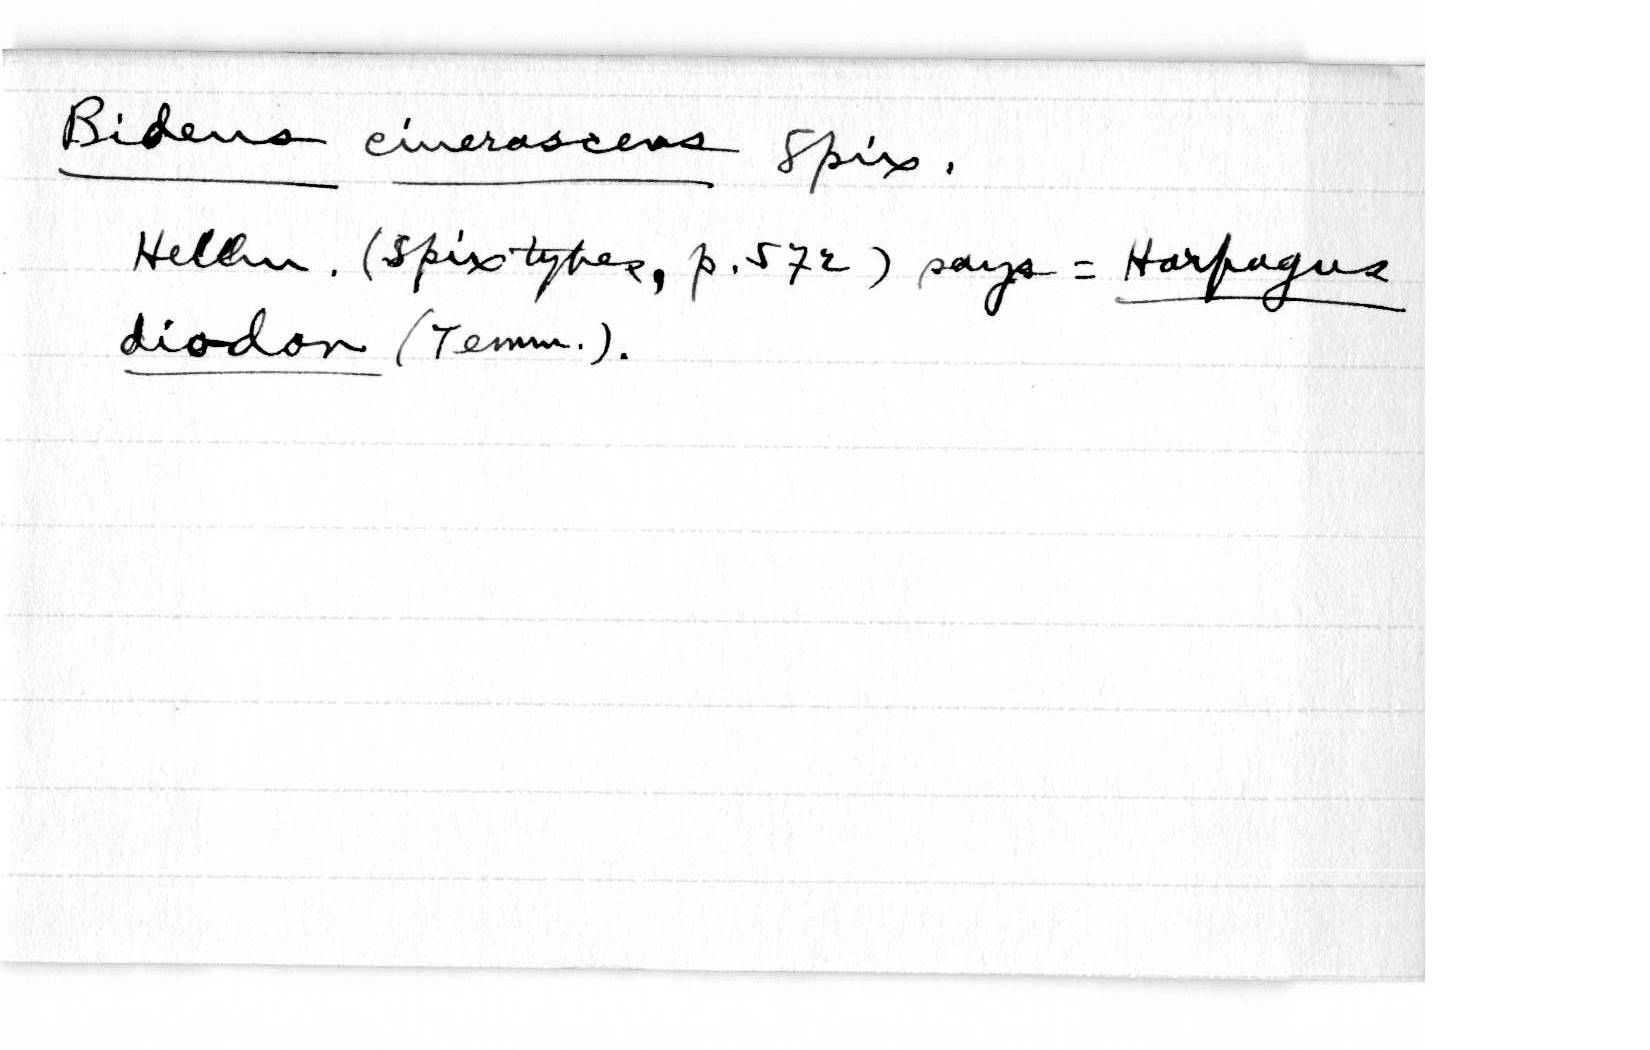 Bidens cinerascens Spix.
Hellm. (Spix types, p. 572) says = Harpagus
diodon (Temm.).